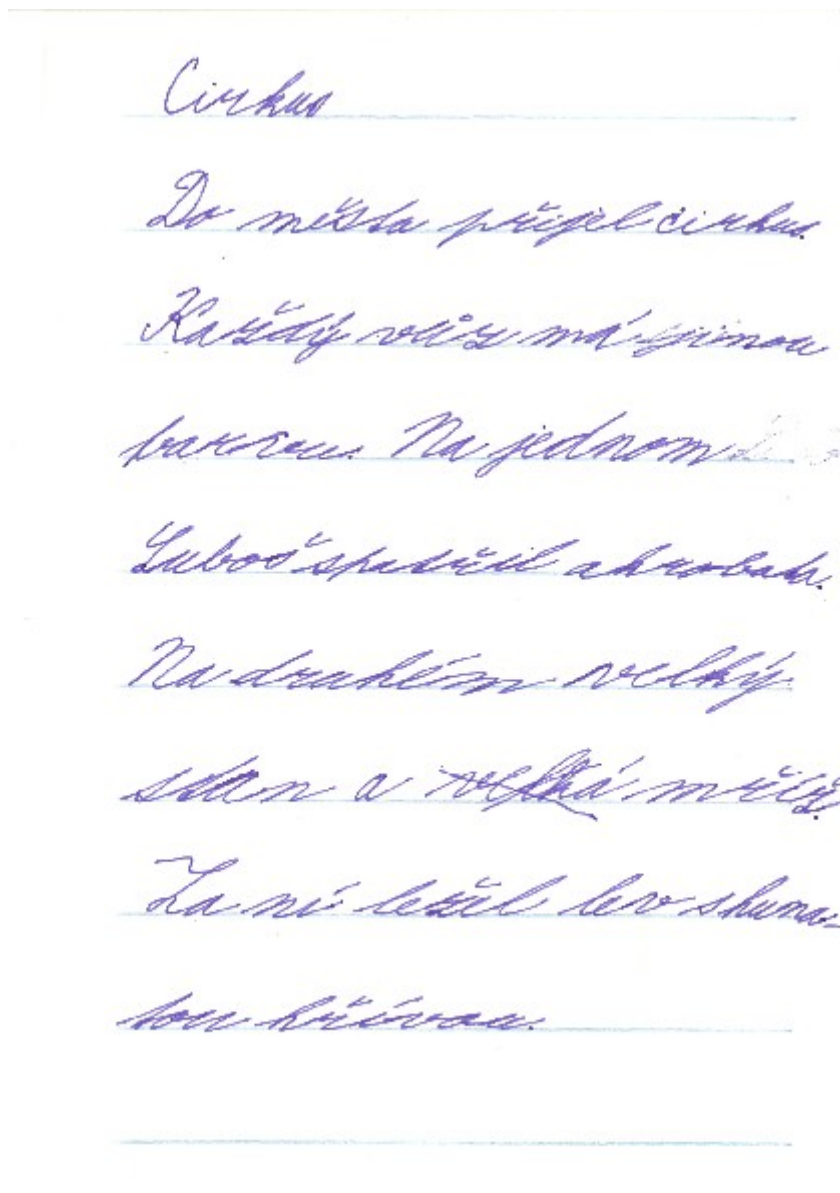 Cirkus
Do města přijel cirkus.
Každý vůz má jinou
barvou. Na jednom
Luboš spatřil akrobata.
Na druhém velký
stan a velká mříž.
Za ní ležel lev shuna-
tou hřívou.